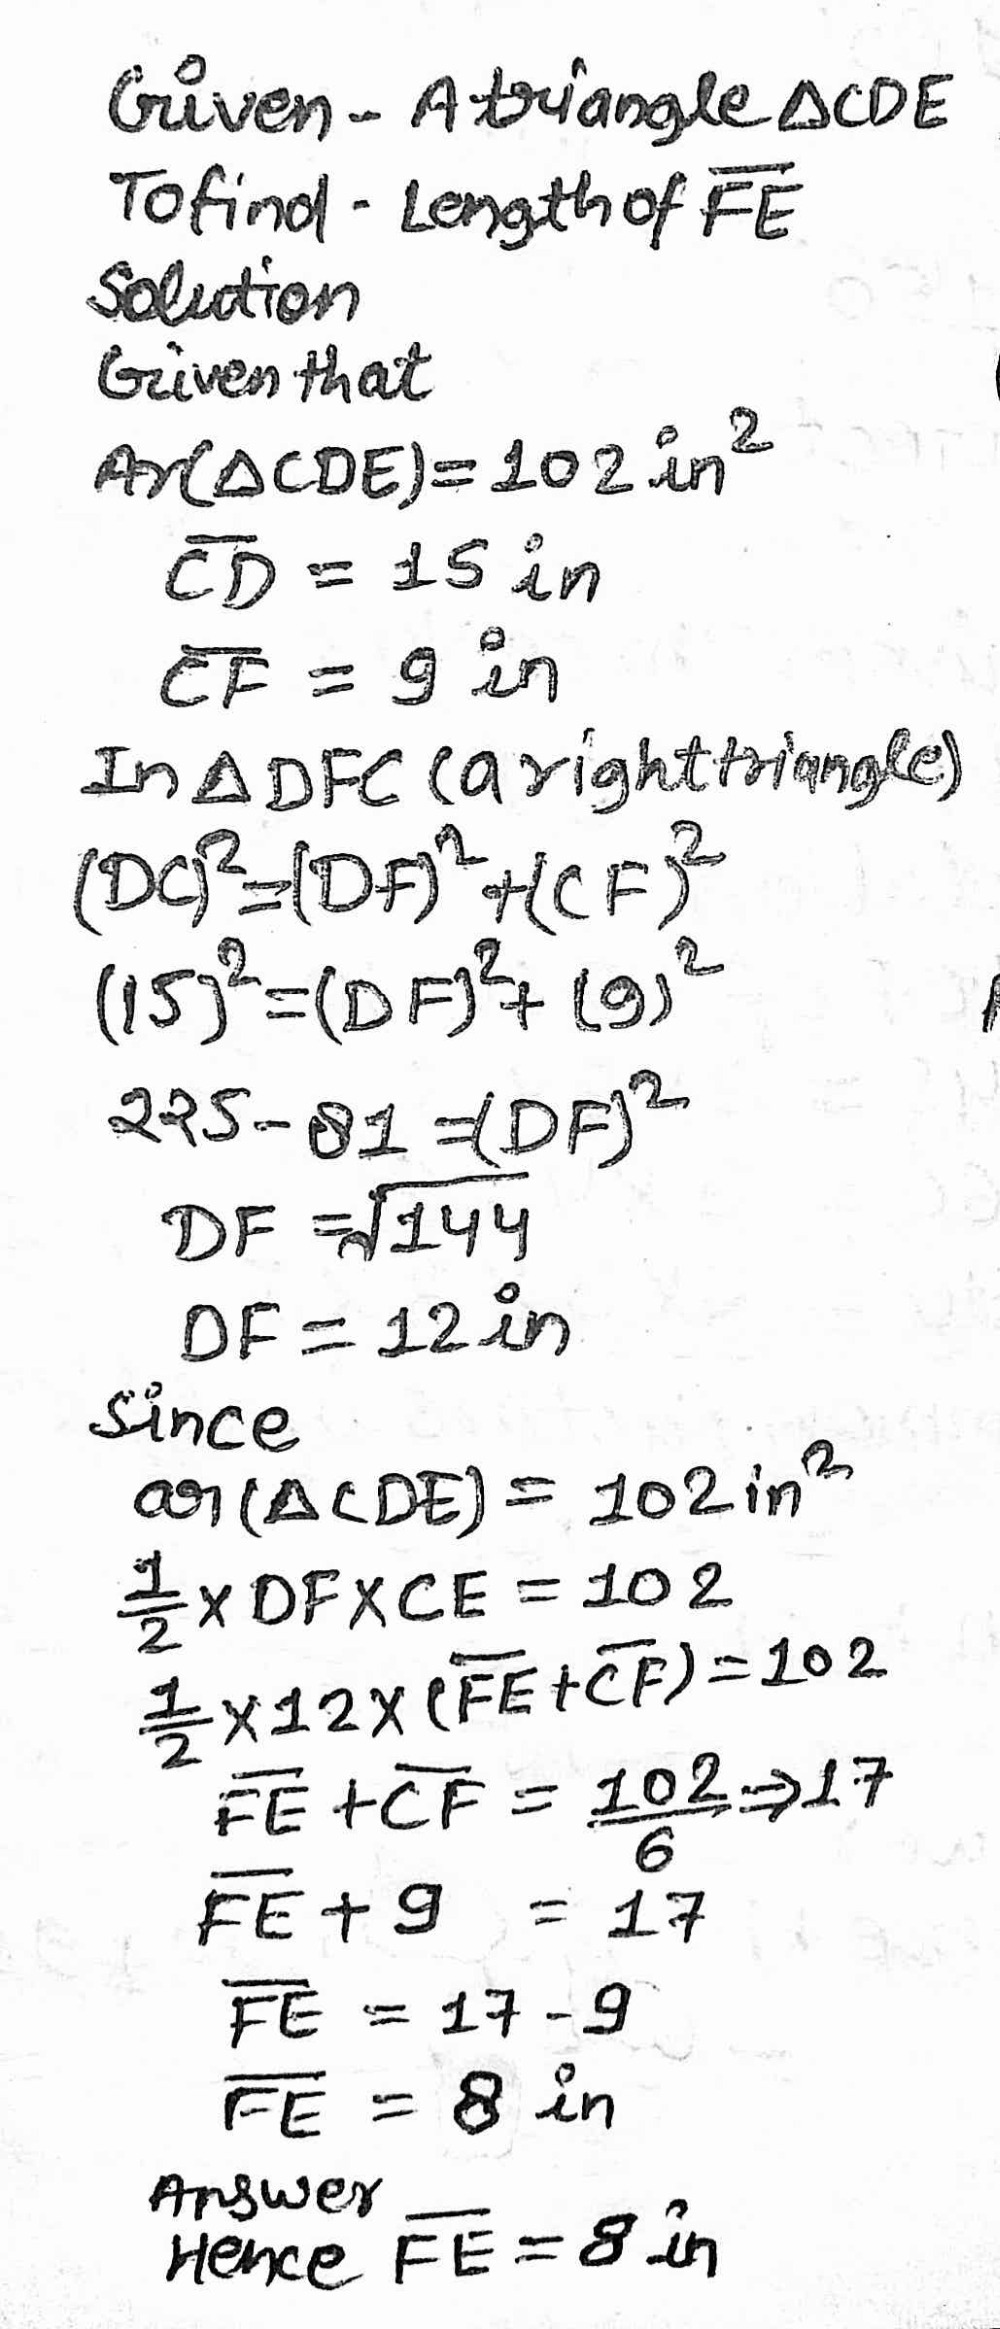 Given - A triangle △CDE
To find - Length of F̅E̅
Solution
Given that
Ar(△CDE) = 102 in²
C̅D̅ = 15 in
C̅F̅ = 9 in
In △DFC (a right triangle)
(DC)² = (DF)² + (CF)²
(15)² = (DF)² + (9)²
225 - 81 = (DF)²
DF = √144
DF = 12 in
Since
ar(△CDE) = 102 in²
1/2 × DF × CE = 102
1/2 × 12 × (F̅E̅ + C̅F̅) = 102
F̅E̅ + C̅F̅ = 102/6 ⇒ 17
F̅E̅ + 9 = 17
F̅E̅ = 17 - 9
F̅E̅ = 8 in
Answer
Hence F̅E̅ = 8 in